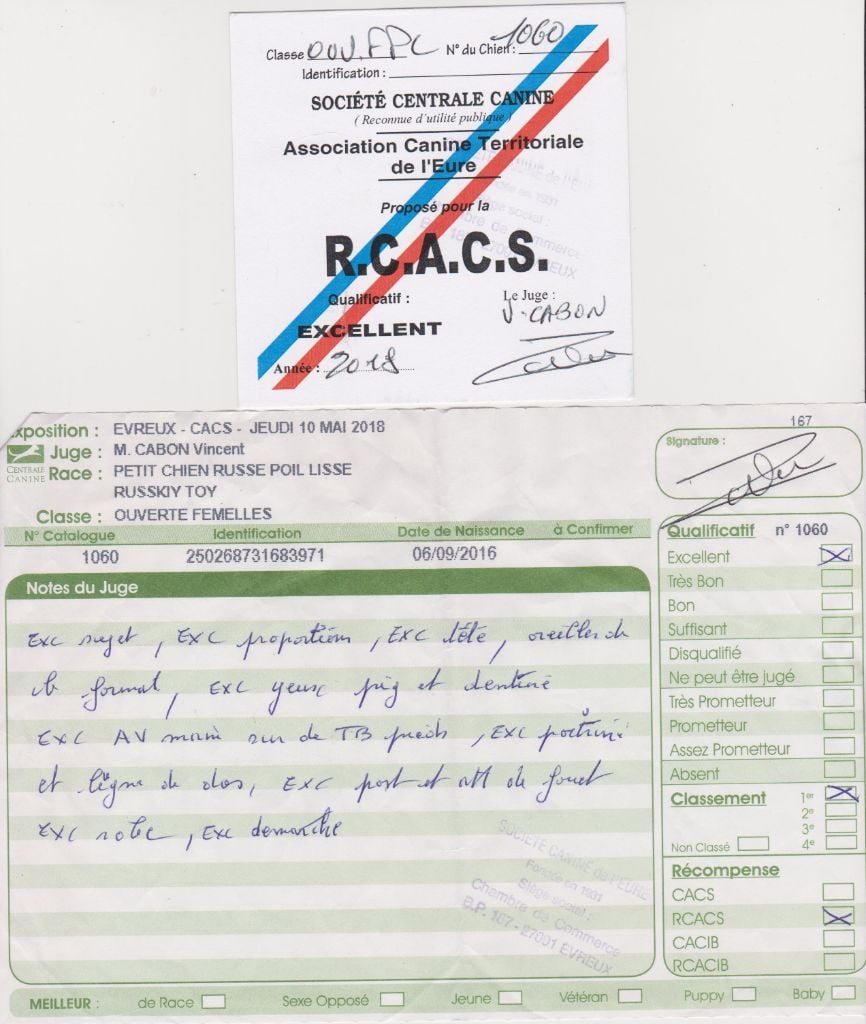 Classe OUV.FPC N° du Chien : 1060
Identification :
SOCIÉTÉ CENTRALE CANINE
( Reconnue d'utilité publique )
Association Canine Territoriale
de l'Eure
Proposé pour la
R.C.A.C.S.
Qualificatif :
EXCELLENT
Le Juge :
V. CABON
Année : 2018
xposition : EVREUX - CACS - JEUDI 10 MAI 2018
Juge : M. CABON Vincent
CENTRALE CANINE
Race : PETIT CHIEN RUSSE POIL LISSE
RUSSKIY TOY
Classe : OUVERTE FEMELLES
167
Signature :
N° Catalogue Identification Date de Naissance à Confirmer
1060 250268731683971 06/09/2016
Notes du Juge
Exc sujet, EXC proportions, EXC tête, oreilles de
format, EXC yeux pig et dentine
EXC AV main sur de TB pieds, EXC poitrine
et ligne de dos, EXC port et att de fouet
EXC robe, Exc demarche
SOCIETE CANINE de l'EURE
Fondée en 1931
Siège social :
Chambre de Commerce
B.P. 187 - 27001 EVREUX
Qualificatif n° 1060
Excellent
Très Bon
Bon
Suffisant
Disqualifié
Ne peut être jugé
Très Prometteur
Prometteur
Assez Prometteur
Absent
Classement 1er
2e
3e
Non Classé 4e
Récompense
CACS
RCACS
CACIB
RCACIB
MEILLEUR : de Race Sexe Opposé Jeune Vétéran Puppy Baby